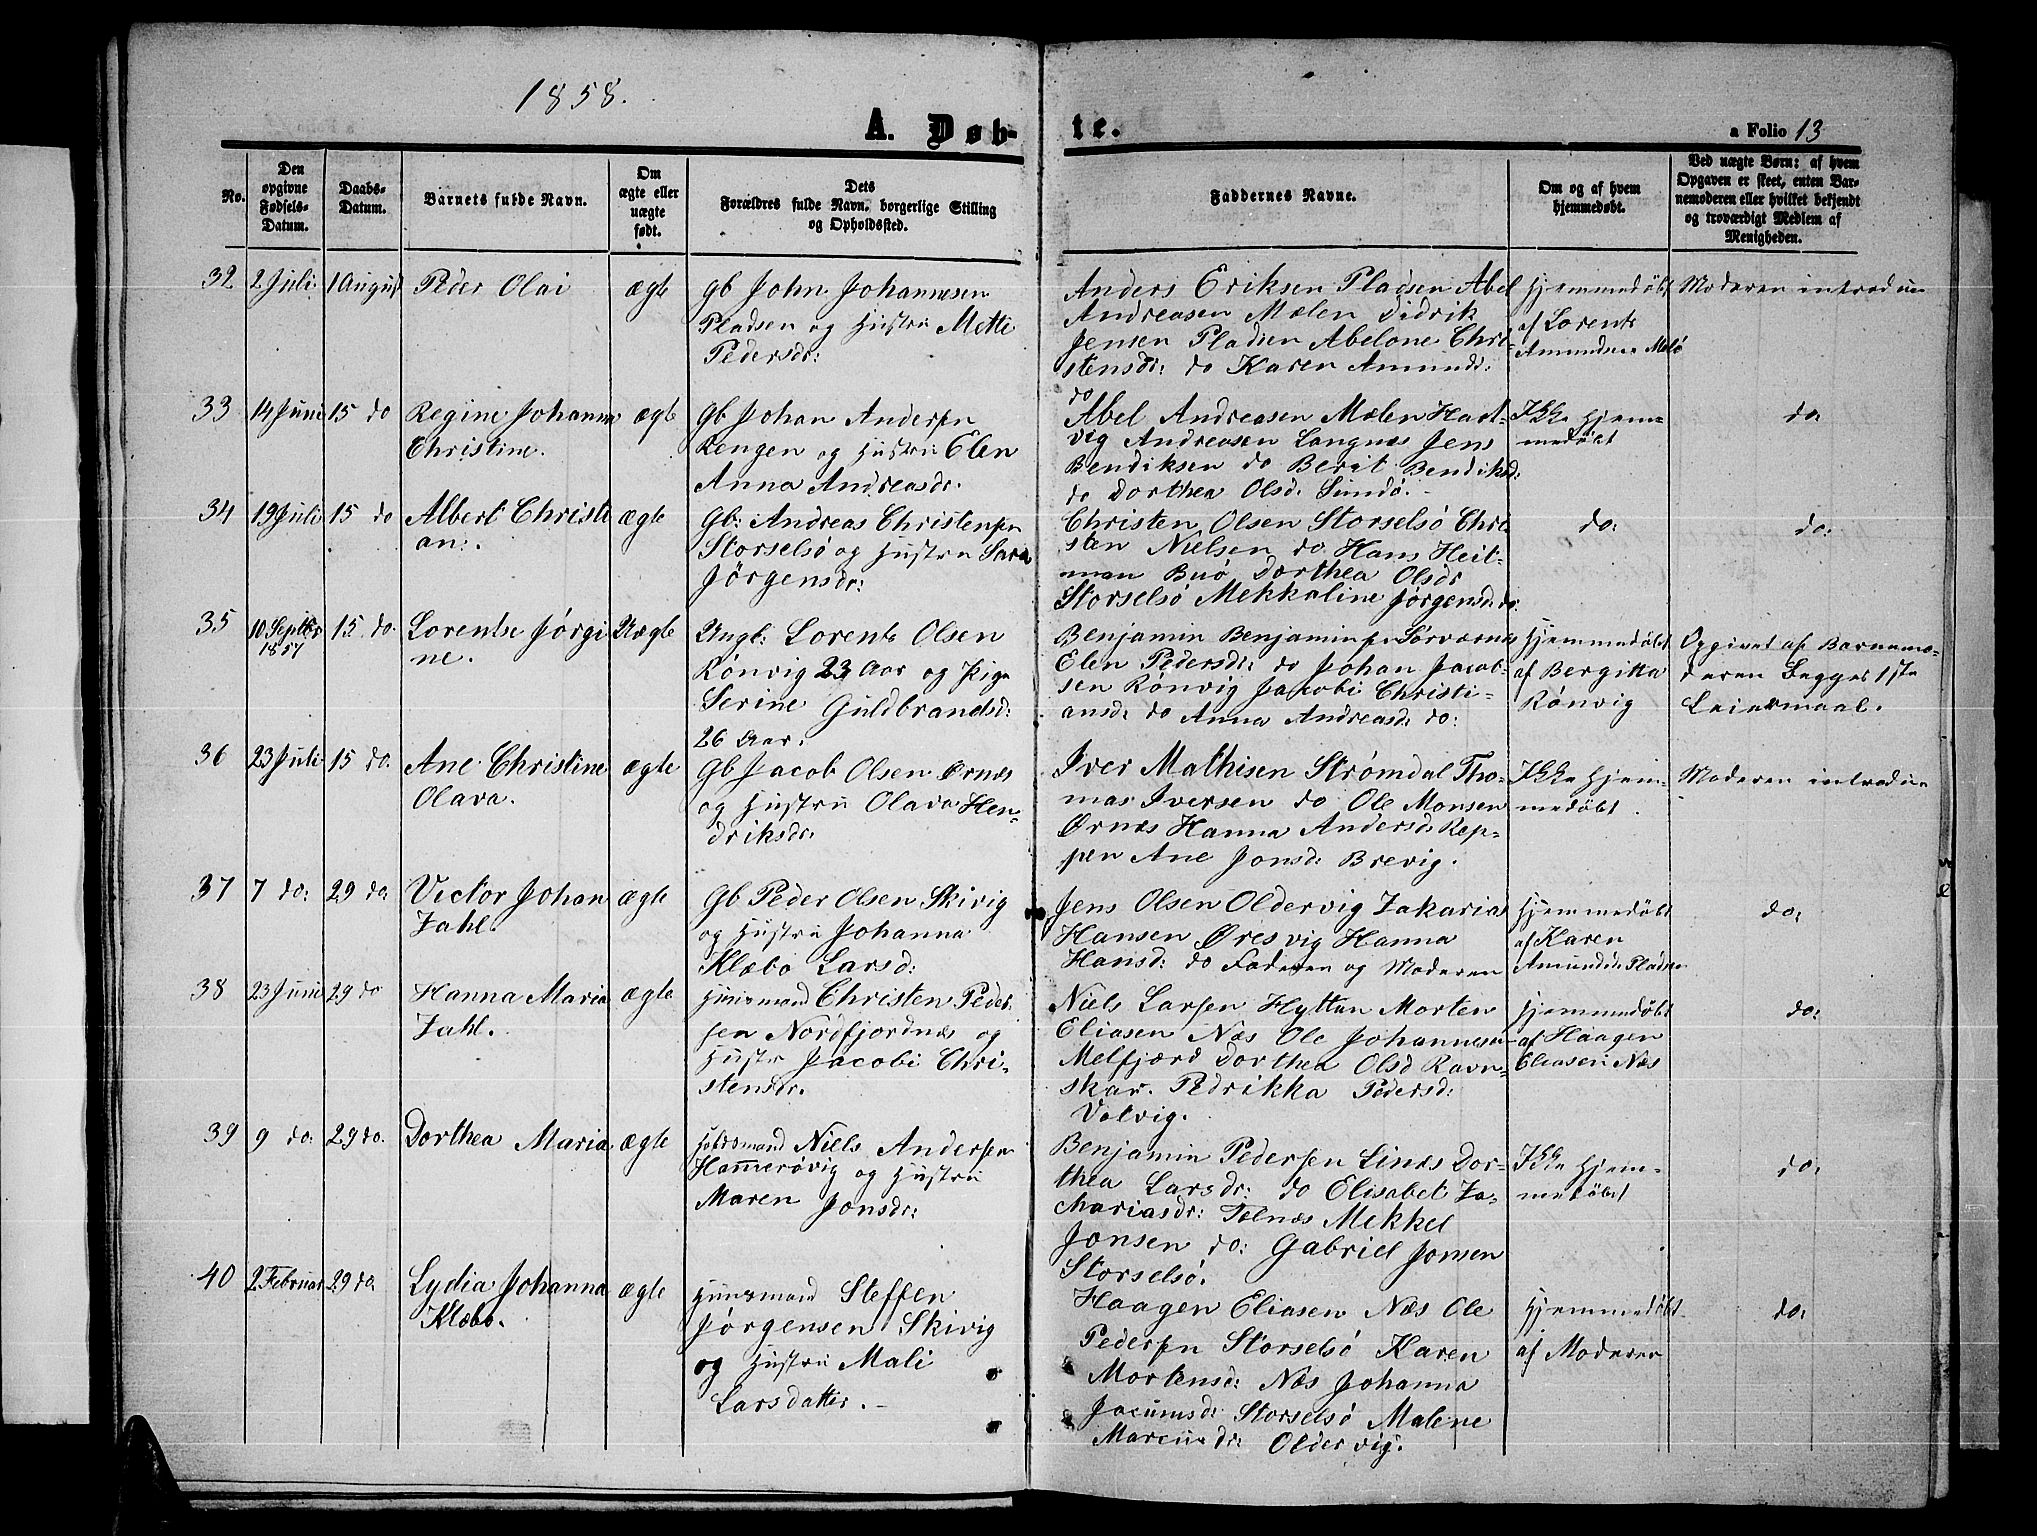 1858.
A. Døb-
te.
a Folio 13
No.
Den
opgivne
Fødsels-
Datum.
Daabs-
Datum.
Barnets fulde Navn.
Om
ægte eller
uægte
født.
Dets
Forældres fulde Navn, borgerlige Stilling
og Opholdssted.
Faddernes Navne.
Om og af hvem
hjemmedøbt.
Ved uægte Børn: af hvem
Opgaven er skeet, enten Bar-
nemoderen eller hvilket bekjendt
og troværdigt Medlem af
Menigheden.
32
2 Juli
1 August
Peder Olai
ægte
Gb John Johannesen
Pladsen og Hustru Mette
Pedersdr:
Anders Eriksen Pladsen Abel
Andreasen Mælen Didrik
Jensen Pladsen Abelone Chri-
stensdr: do Karen Amundd:
do
Hjemmedøbt
af Lorents
Amundsen Melø
Moderen introdu
33
14 Juni
15 do
Regine Johanna
Christine.
ægte
Gb Johan Andersen
Rengen og Hustru Elen
Anna Andreasdr.
Abel Andreasen Mælen Hart-
vig Andreasen Langnes Jens
Bendiksen do Berit Bendiksd:
do Dorthea Olsd. Sundø.
Ikke hjem-
medøbt
do:
34
19 Juli
15 do
Albert Christi
an.
ægte
Gb: Andreas Christensen
Storselsø og Hustru Sara
Jørgensdr:
Christen Olsen Storselsø Chri
sten Nielsen do Hans Heit-
man Buø Dorthea Olsdr
Storselsø Mekkaline Jørgensd: do.
do:
do:
35
10 Septbr
1857
15 do.
Lorentse Jørgi
ne.
Uægte
Ungk: Lorents Olsen
Rønvig 23 Aar og Pige
Serine Guldbrandsd:
26 Aar.
Benjamin Benjaminsen Sørværnes
Elen Pedersdr: do Johan Jacob-
sen Rønvig Jacobi Christi-
ansd: do Anna Andreasd: do:
Hjemmedøbt
af Bergitta
Rønvig
Opgivet af Barnamo-
deren Begges 1ste
Leiermaal.
36
23 Juli
15 do.
Ane Christine
Olava.
ægte
Gb Jacob Olsen Ørnæs
og Hustru Olava Hen-
driksdr:
Iver Mathisen Strømdal Tho-
mas Iversen do Ole Monsen
Ørnæs Hanna Andersd: Rep-
pen Ane Jonsd: Brevig.
Ikke hjem-
medøbt.
Moderen introdu-
37
7 do:
29 do.
Victor Johan
Zahl.
ægte
Gb Peder Olsen Skivig
og Hustru Johanna
Klæbo Larsd:
Jens Olsen Oldervig Zakarias
Hansen Øresvig Hanna
Hansd: do Faderen og Moderen
Hjemmedøbt
af Karen
Amundsd: Pladsen
do:
38
23 Juni
29 do
Hanna Maria
Zahl.
ægte
Huusmand Christen Peder-
sen Nordfjordnæs og
Hustr Jacobi Chri-
stensdr.
Niels Larsen Hyttan Morten
Eliasen Næs Ole Johannesen
Melfjord Dorthea Olsd Ravn-
skar. Pedrikka Pedersd:
Valvig.
Hjemmedøbt
af Haagen
Eliasen Næs
do:
39
9 do:
29 do.
Dorthea Maria
ægte
Huusmand Niels Andersen
Hammerøvig og Hustru
Maren Jonsdr:
Benjamin Pedersen Linæs Dor-
thea Larsdr: do Elisabet Za-
chariasdr: Tolnæs Mekkel
Jonsen do: Gabriel Jonsen
Storselsø.
Ikke hjem-
medøbt
do:
40
2 Februar
29 do.
Lydia Johanna
Klæbo.
ægte
Huusmand Steffen
Jørgensen Skivig
og Hustru Mali
Larsdatter.
Haagen Eliasen Næs Ole
Pedersen Storselsø Karen
Mortensd: Næs Johanna
Jacumsd: Storselsø Malene
Marcusdr: Oldervig.
Hjemmedøbt
af Moderen
do: